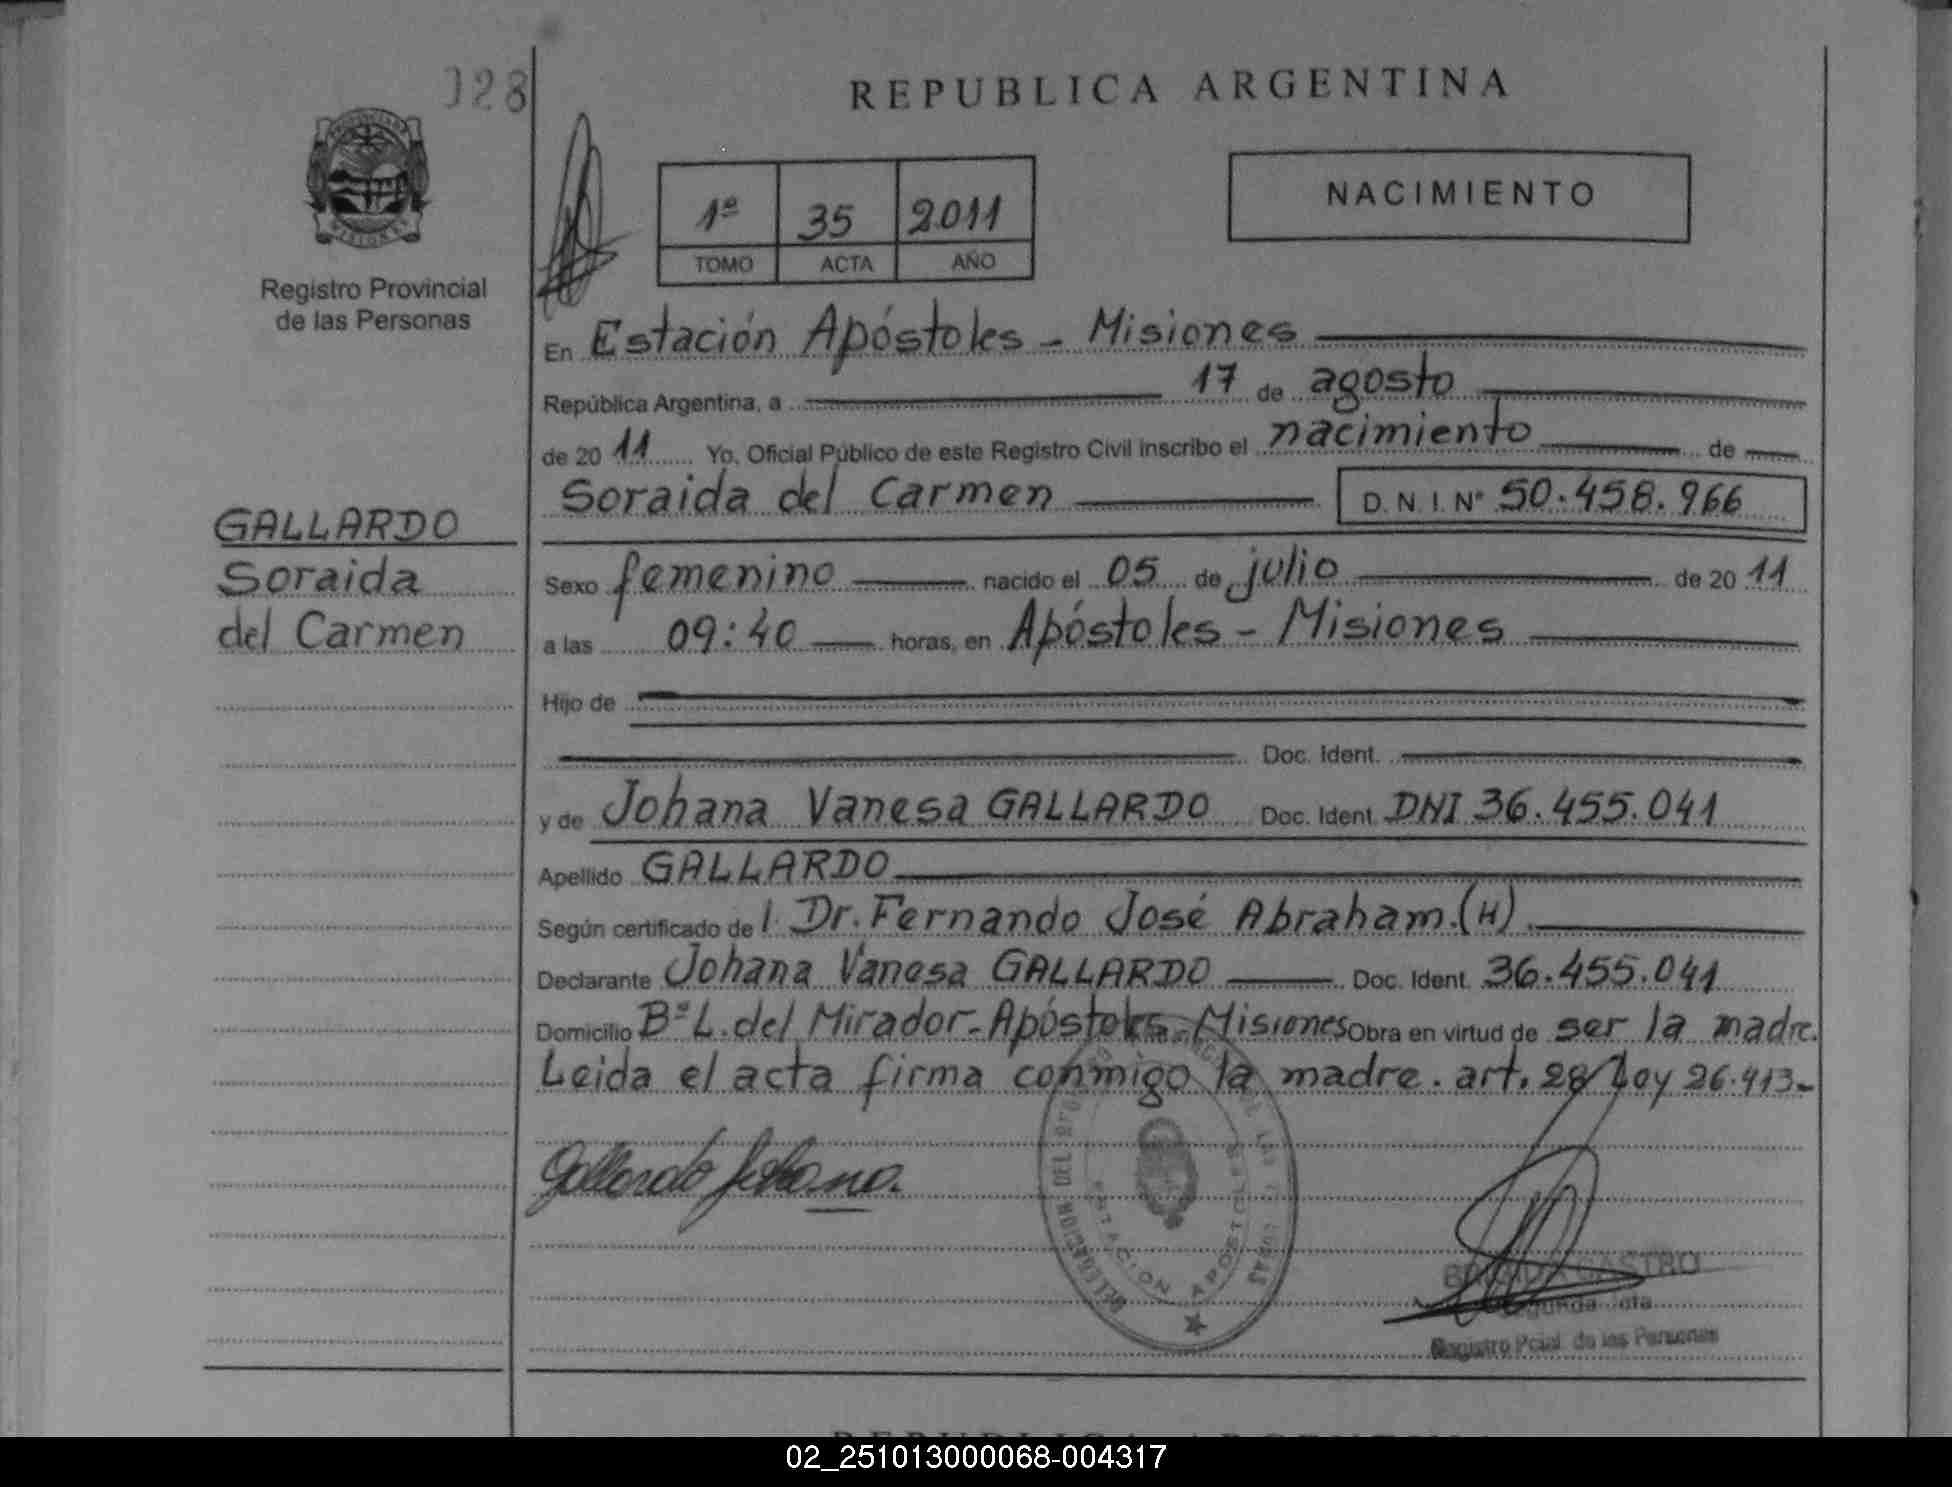 028
REPUBLICA ARGENTINA
PROVINCIA DE
MISIONES
Registro Provincial
de las Personas
1º 35 2011
TOMO ACTA AÑO
NACIMIENTO
En Estación Apóstoles - Misiones
República Argentina, a 17 de agosto
de 2011 Yo, Oficial Público de este Registro Civil inscribo el nacimiento de
Soraida del Carmen D. N. I. Nº 50.458.966
GALLARDO
Soraida
del Carmen
Sexo femenino nacido el 05 de julio de 2011
a las 09:40 horas, en Apóstoles - Misiones
Hijo de
Doc. Ident.
y de Johana Vanesa GALLARDO Doc. Ident. DNI 36.455.041
Apellido GALLARDO
Según certificado de l. Dr. Fernando José Abraham.(H)
Declarante Johana Vanesa GALLARDO Doc. Ident. 36.455.041
Domicilio Bº L. del Mirador - Apóstoles - Misiones Obra en virtud de ser la madre.
Leida el acta firma conmigo la madre. art. 28 Ley 26.413-
Gallardo Johana.
DELEGACION DEL
ESTACION APOSTOLES
BRIGIDA CASTRO
Segunda Jefa
Registro Pcial. de las Personas
REPUBLICA ARGENTINA
02_251013000068-004317